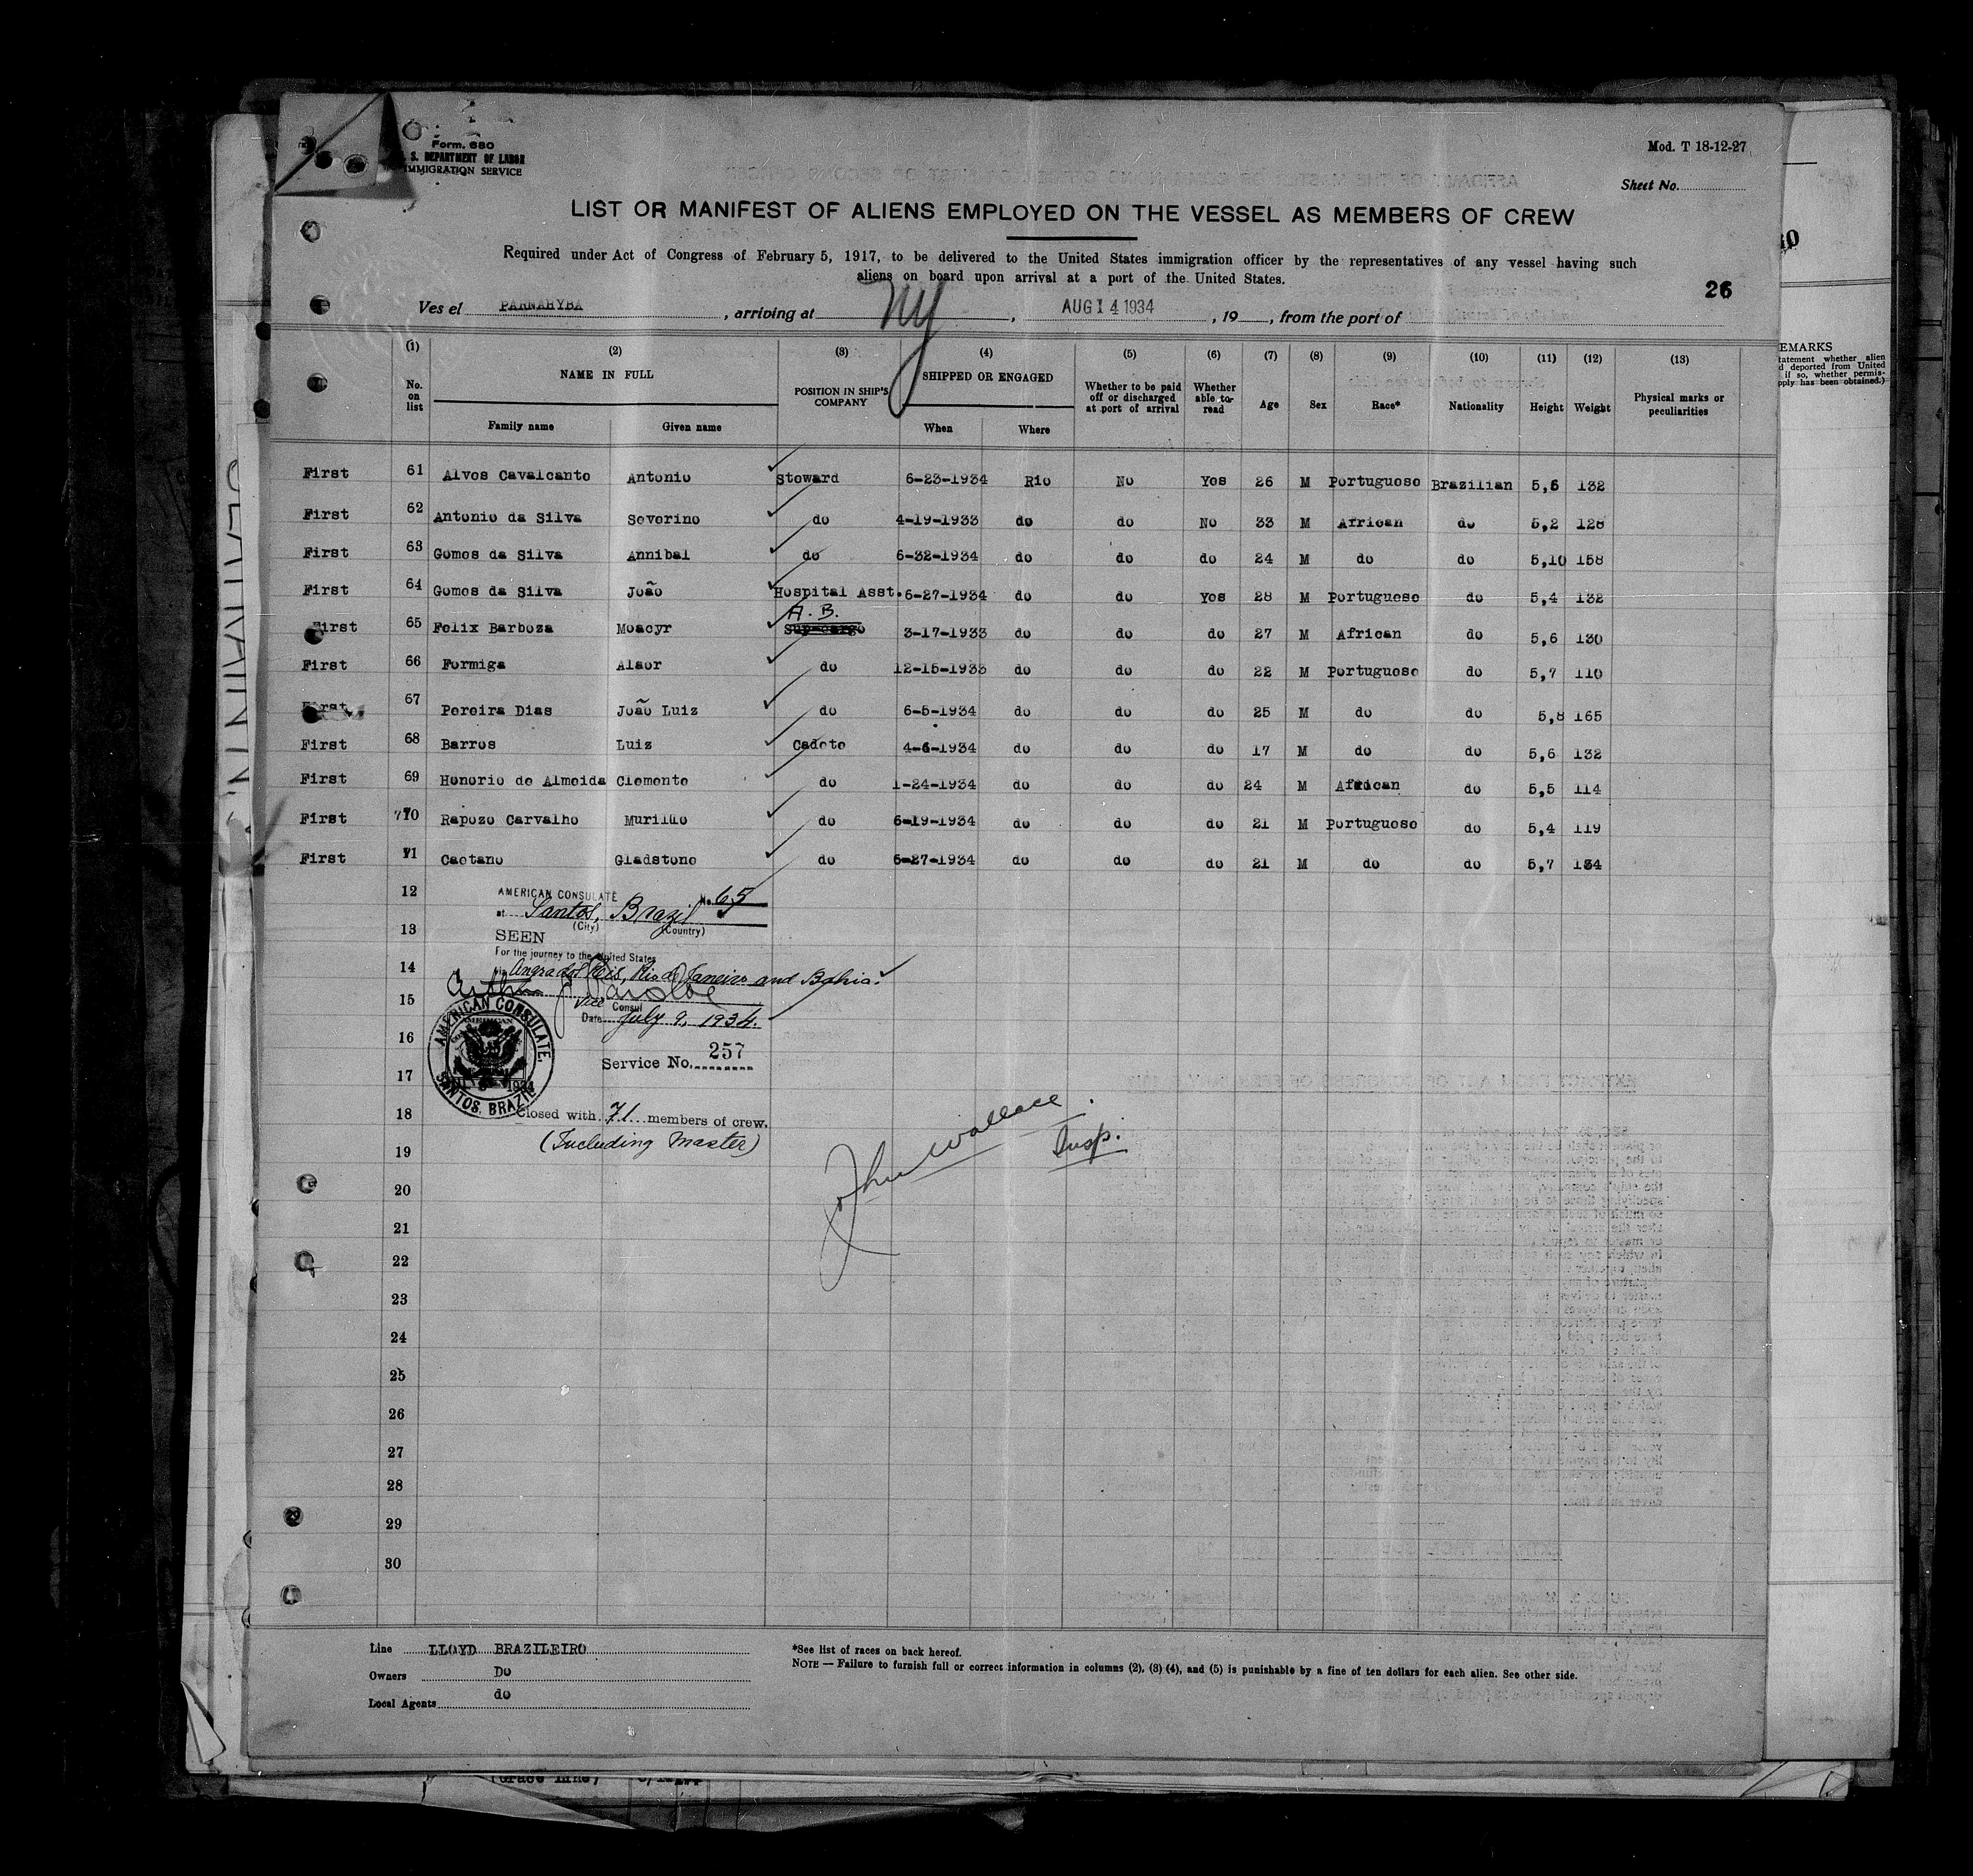 Form. 680
S. DEPARTMENT OF LABOR
IMMIGRATION SERVICE
Mod. T 18-12-27
Sheet No.
LIST OR MANIFEST OF ALIENS EMPLOYED ON THE VESSEL AS MEMBERS OF CREW
Required under Act of Congress of February 5, 1917, to be delivered to the United States immigration officer by the representatives of any vessel having such
aliens on board upon arrival at a port of the United States.
26
Ves el PARNAHYBA, arriving at NY, AUG 14 1934, 19, from the port of
(1) (2) (3) (4) (5) (6) (7) (8) (9) (10) (11) (12) (13)
No. on list NAME IN FULL Family name Given name POSITION IN SHIP'S COMPANY SHIPPED OR ENGAGED When Where Whether to be paid off or discharged at port of arrival Whether able to read Age Sex Race* Nationality Height Weight Physical marks or peculiarities
First 61 Alves Cavalcante Antonio Steward 6-23-1934 Rio No Yes 26 M Portuguese Brazilian 5,6 132
First 62 Antonio da Silva Severino do 4-19-1933 do do No 33 M African do 5,2 128
First 63 Gomes da Silva Annibal do 6-32-1934 do do do 24 M do do 5,10 158
First 64 Gomes da Silva João Hospital Asst. 6-27-1934 do do Yes 28 M Portuguese do 5,4 132
A. B.
First 65 Felix Barboza Moacyr Sup-cargo 3-17-1933 do do do 27 M African do 5,6 130
First 66 Formiga Alaor do 12-15-1933 do do do 22 M Portuguese do 5,7 110
First 67 Pereira Dias João Luiz do 6-5-1934 do do do 25 M do do 5,8 165
First 68 Barros Luiz Cadete 4-6-1934 do do do 17 M do do 5,6 132
First 69 Honorio de Almeida Clemente do 1-24-1934 do do do 24 M African do 5,5 114
First 70 Rapozo Carvalho Murillo do 6-19-1934 do do do 21 M Portuguese do 5,4 119
First 71 Caetano Gladstone do 6-27-1934 do do do 21 M do do 5,7 134
12
AMERICAN CONSULATE No. 65
at Santos, Brazil
(City) (Country)
13
SEEN
For the journey to the United States
14
via Angra dos Reis, Rio de Janeiro and Bahia.
Arthur
15
Vice Consul
Date July 9, 1934.
AMERICAN CONSULATE,
SANTOS, BRAZIL
1934
16
Service No. 257
17
18
Closed with 71 members of crew.
19
(Including Master)
John Wallace.
Insp.
20
21
22
23
24
25
26
27
28
29
30
Line LLOYD BRAZILEIRO
Owners Do
Local Agents do
*See list of races on back hereof.
NOTE — Failure to furnish full or correct information in columns (2), (3) (4), and (5) is punishable by a fine of ten dollars for each alien. See other side.
EMARKS
tatement whether alien
d deported from United
if so, whether permis-
pply has been obtained.)
(Grace Line)